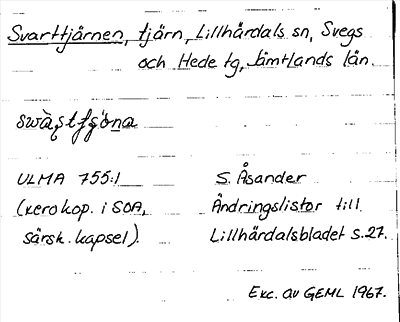 Svarttjärnen, tjärn, Lillhärdals sn, Svegs
och Hede tg, Jämtlands län.
ULMA 755:1
(xerokop. i SOA,
särsk. kapsel).
S. Åsander
Ändringslistor till
Lillhärdalsbladet s.27.
Exc. av GEML 1967.